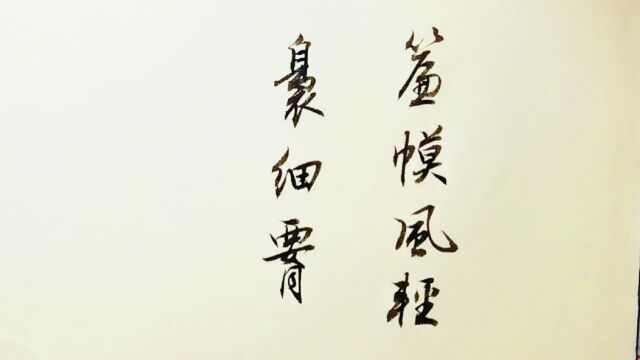 簾幙風輕
裊細腰